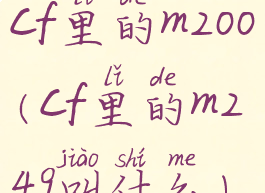 lǐ de
cf里的m200
lǐ de
(cf里的m2
jiào shí me
49叫什么)